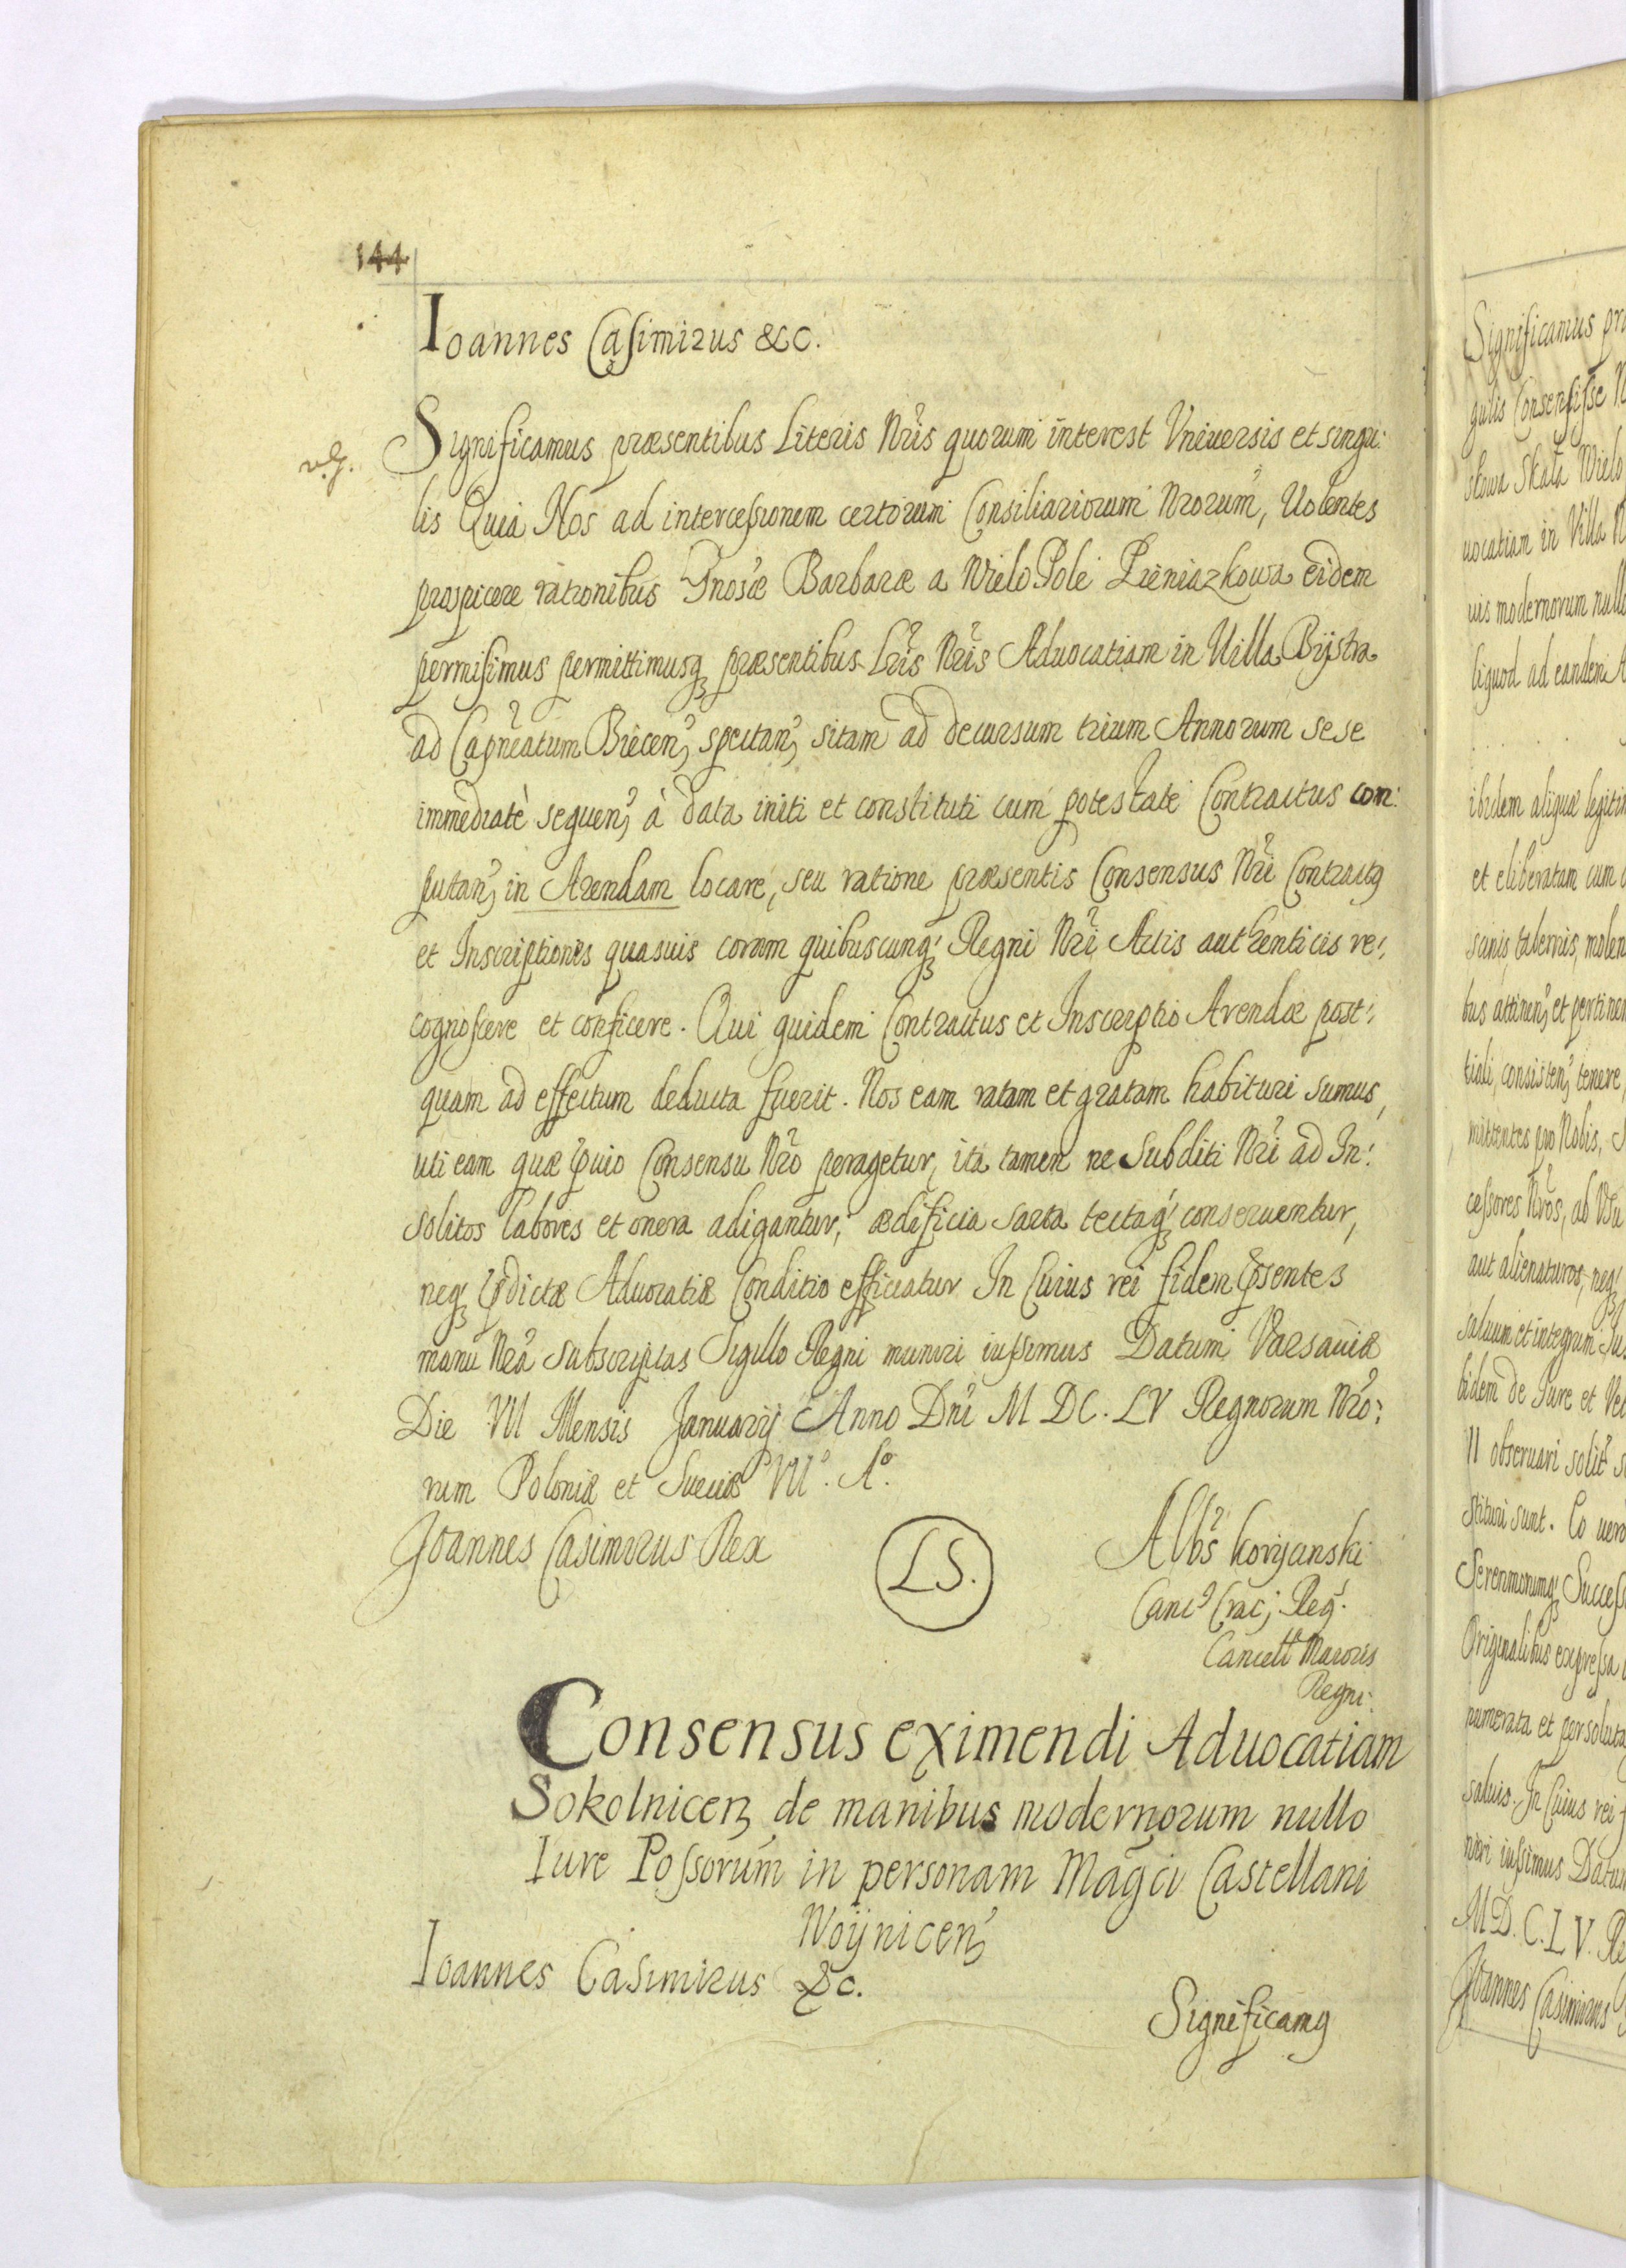 144
Ioannes Casimirus &c.
Significamus præsentibus Literis Nris quorum interest Vniuersis et singu:
lis Quia Nos ad intercessionem certorum Consiliariorum Nrorum, Uolentes
prospicere rationibus Gnosæ Barbaræ a Wielo Pole Pieniazkowa eidem
permisimus permittimusq præsentibus Lris Nris Aduocatiam in Uilla Bÿstra
ad Capneatum Biecen, spectan, sitam ad decursum trium Annorum sese
immediatè sequen, à data initi et constituti cum potestate Contractus com:
putan, in Arendam locare, seu ratione præsentis Consensus Nri Contractq
et Inscriptiones quasuis coram quibuscunq Regni Nri Actis authenticis re:
cognoscere et conficere. Qui quidem Contractus et Inscriptio Arendæ post:
quam ad effectum deducta fuerit. Nos eam ratam et gratam habituri sumus,
uti eam quæ puio Consensu Nro peragetur, ita tamen ne Subditi Nri ad In:
solitos labores et onera adigantur, ædificia sarta tectaq conseruentur,
neq pdictæ Aduocatiæ Conditio efficiatur In Cuius rei fidem psentes
manu Nra subscriptas Sigillo Regni muniri iussimus Datum Varsauiæ
Die VII Mensis Januarÿ Anno Dni M DC. LV Regnorum Nro:
rum Poloniæ et Sueciæ VII°. A°.
Joannes Casimirus Rex
LS.
Albs Korÿcinski
Canc Crac, Reg.
Cancell Maioris
Regni.
Consensus eximendi Aduocatiam
Sokolnicen, de manibus modernorum nullo
Iure Possorum in personam Magci Castellani
Woÿnicen,
Ioannes Casimirus &c.
Significamq
Significamus
gulis Consensisse
skowa Skala Wielo
uocatiam in Villa
uis modernorum
liquod ad eandem
ibidem aliquæ
et eliberatam cum
tabernis,
bus attinen, et
consisten, tenere,
mittentes pro Nobis,
cessores Nros, ab Vsu
aut alienaturos, neq
saluum et integrum
bidem de Iure et
observari solit
stituri sunt. Eo uero
Originalibus expressa
numerata et persoluta
saluis. In Cuius rei
niri iussimus
M.D.C.L.V.
Joannes Casimirus